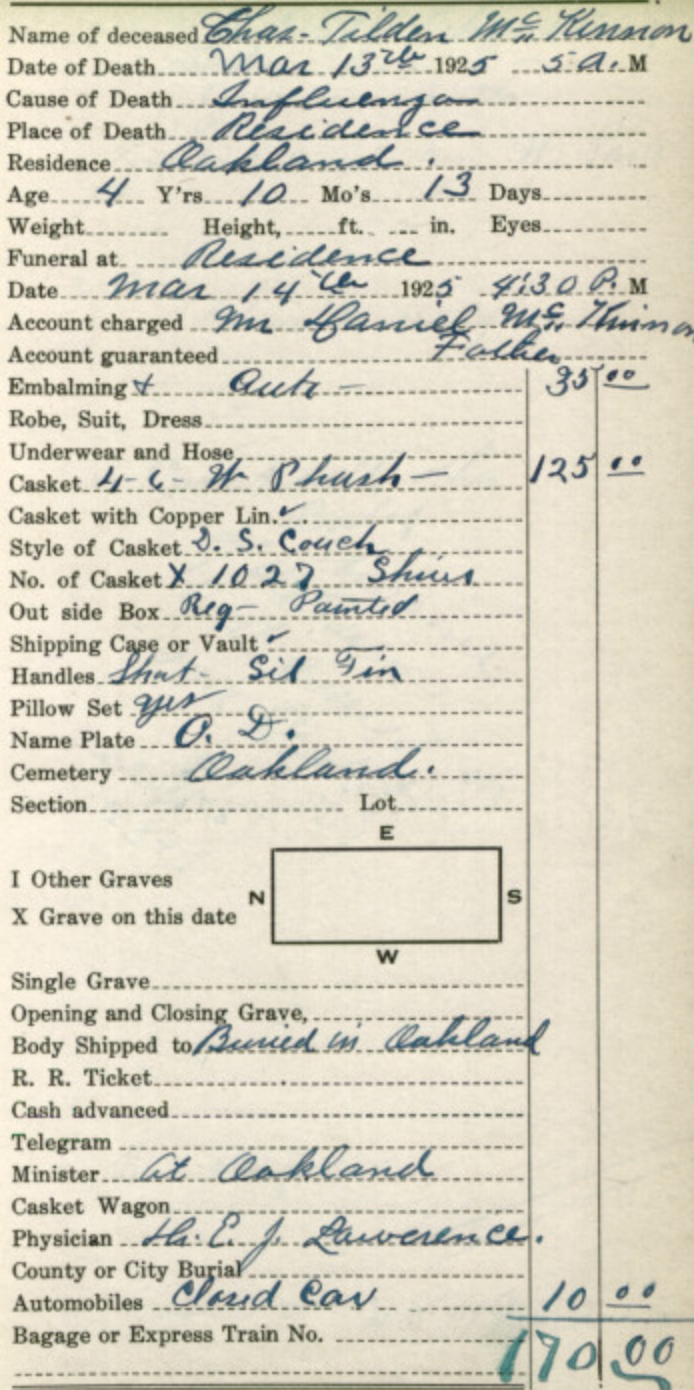 Name of deceased Chas- Tilden McKinnon
Date of Death Mar 13th 1925 5 a. M
Cause of Death Influenza
Place of Death Residence
Residence Oakland.
Age 4 Y'rs 10 Mo's 13 Days
Weight Height, ft. in. Eyes
Funeral at Residence
Date Mar 14th 1925 4:30 P. M
Account charged Mr Daniel McKinnon
Account guaranteed Father
Embalming & Auto - 35 00
Robe, Suit, Dress
Underwear and Hose
Casket 4-6- W Plush - 125 00
Casket with Copper Lin.
Style of Casket D. S. Couch
No. of Casket X 1027
Out side Box Reg- Painted
Shipping Case or Vault
Handles Short- Sil Fin
Pillow Set yes
Name Plate O. D.
Cemetery Oakland.
Section Lot
E
I Other Graves
N S
X Grave on this date
W
Single Grave
Opening and Closing Grave,
Body Shipped to Buried in Oakland
R. R. Ticket
Cash advanced
Telegram
Minister at Oakland
Casket Wagon
Physician Dr. E. J. Lawerence.
County or City Burial
Automobiles Closed Car 10 00
Bagage or Express Train No. 170 00